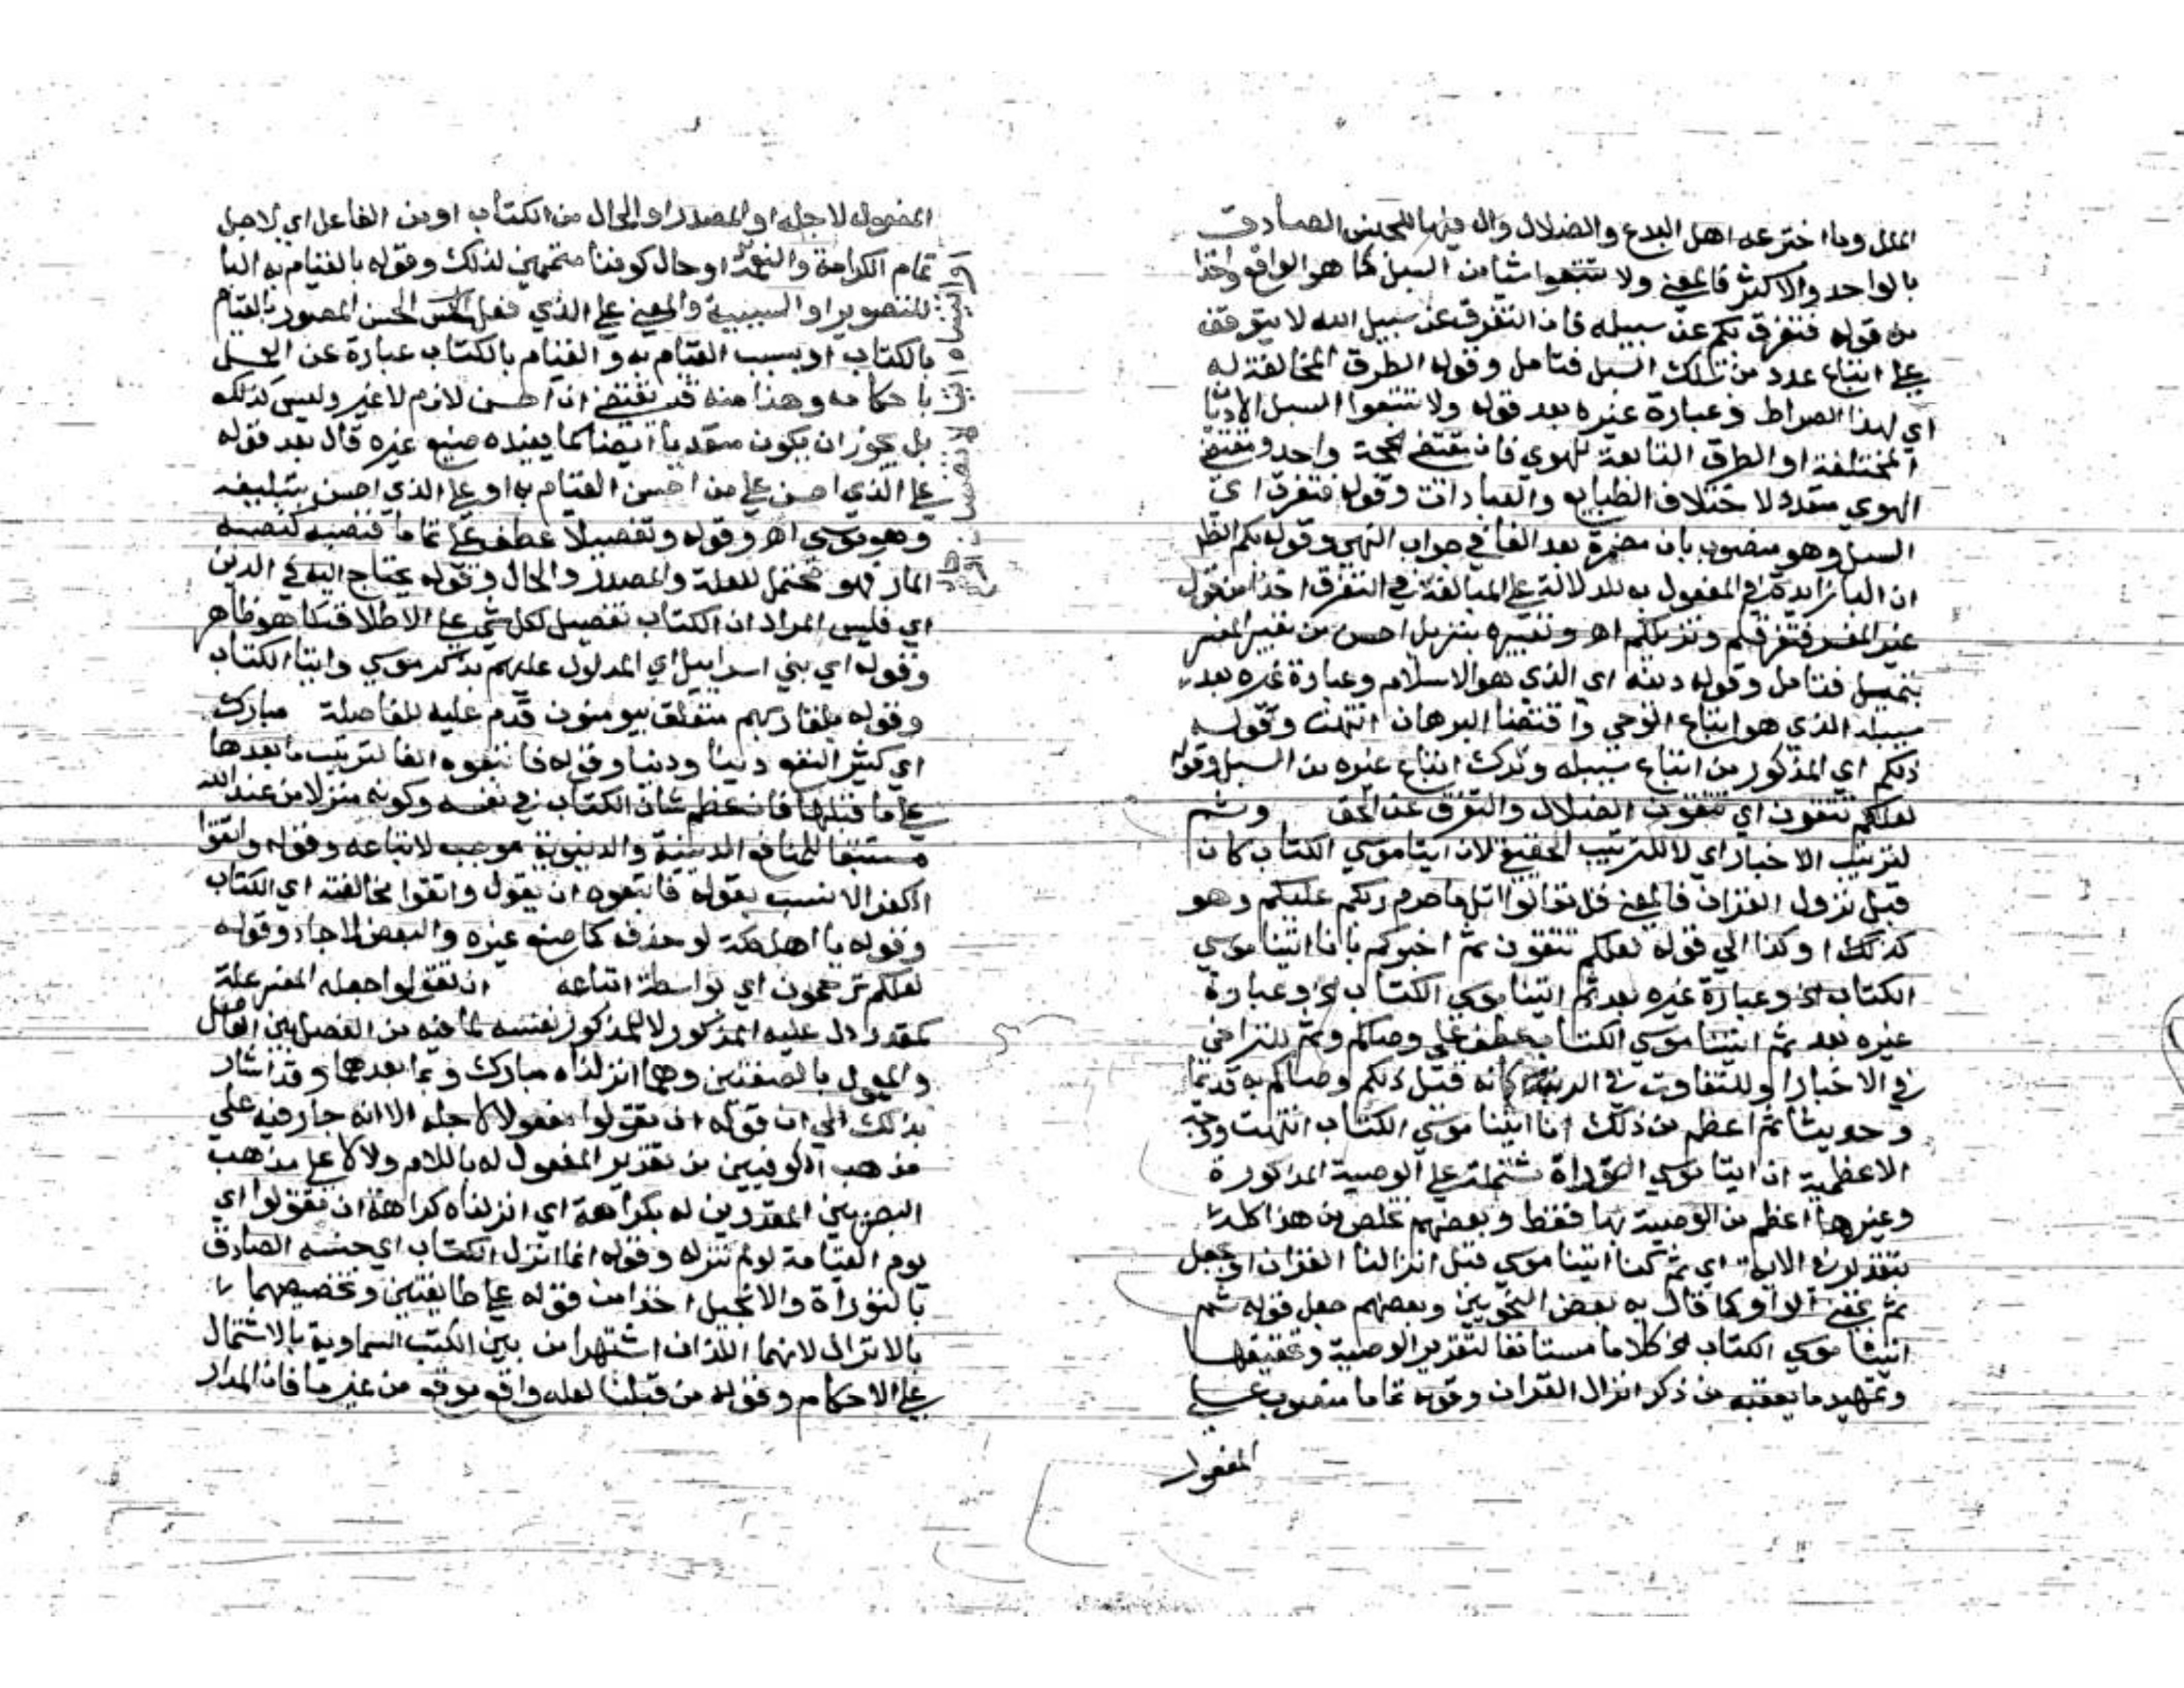 الملل وما اخترعه اهل البدع والضلال وال فيها للجنس الصادق
بالواحد والاكثر فالمعنى ولا تتبعوا شيا من السبل كما هو الواقع واخذا
من قوله فتفرق بكم عن سبيله فان التفرق عن سبيل الله لا يتوقف
على اتباع عدد من تلك السبل فتامل وقوله الطرق المخالفة له
اي لهذا الصراط وعبارة غيره بعد قوله ولا تتبعوا السبل الاديان
المختلفة او الطرق التابعة للهوي فان مقتضى الحجة واحد ومقتضى
الهوي متعدد لاختلاف الطبايع والعادات وقوله فتفرق اي
السبل وهو منصوب بان مضمرة بعد الفا في جواب النهي وقوله بكم
ان البا زايدة في المفعول به للدلالة على المبالغة في التفرق اخذا من قول
غير المفسر فتفرقكم وتزيلكم اه وتفسيره بتزيل احسن من تفسير المفسر
بتميل فتامل وقوله دينه اي الذي هو الاسلام وعبارة غيره بعد
سبيله الذي هو اتباع الوحي واقتضا البرهان انتهت وقوله
ذلكم اي المذكور من اتباع سبيله وترك اتباع غيره من السبل وقوله
لعلكم تتقون اي تتقون الضلال والتفرق عن الحق وثم
لترتيب الاخبار اي لا للترتيب الحقيقي لان ايتا موسي الكتاب كان
قبل نزول القران فالمعنى قل تعالوا اتل ما حرم ربكم عليكم وهو
كذلك او كذا الي قوله لعلكم تتقون ثم اخبركم بانا اتينا موسي
الكتاب الخ وعبارة غيره بعد ثم اتينا موسي الكتاب الخ وعبارة
غيره بعد ثم اتينا موسي الكتاب عطف على وصاكم وثم للتراخي
في الاخبار او للتفاوت في الرتبة كانه قيل ذلكم وصاكم به قديما
وحديثا ثم اعظم من ذلك انا اتينا موسي الكتاب انتهت ووجه
الاعظمية ان ايتا موسي التوراة مشتملة على الوصية المذكورة
وغيرها اعظم من الوصية بها فقط وبعضهم تخلص من هذا كله
بتقدير في الاية اي ثم كنا اتينا موسي قبل انزالنا القران او بجعل
ثم بمعنى الواو كما قال به بعض النحويين وبعضهم جعل قوله ثم
اتينا موسي الكتاب الخ كلاما مستانفا لتقرير الوصية وتحقيقها
وتمهيد ما يعقبه من ذكر انزال القران وقوله تماما منصوب على
المفعول
المفعول لاجله او المصدر او الحال من الكتاب او من الفاعل اي لاجل
تمام الكرامة والنعمة او حال كوننا متممين لذلك وقوله بالقيام به البا
للتصوير او السببية والمعنى على الذي فعل الحسن المصور بالقيام
بالكتاب او بسبب القيام به والقيام بالكتاب عبارة عن العمل
باحكامه وهذا منه قد يقتضي ان احسن لازم لا غير وليس كذلك
بل يجوز ان يكون متعديا ايضا كما يفيده صنيع غيره قال بعد قوله
على الذي احسن على من احسن القيام به او على الذي احسن بتبليغه
وهو موسي اه وقوله وتفصيلا عطف على تماما فنصبه كنصبه
المار فهو محتمل للعلة والمصدر والحال وقوله يحتاج اليه في الدين
اي فليس المراد ان الكتاب تفصيل لكل شي على الاطلاق كما هو ظاهر
وقوله اي بني اسراييل اي المدلول عليهم بذكر موسي وايتا الكتاب
وقوله بلقا ربهم متعلق بيومنون قدم عليه للفاصلة مبارك
اي كثير النفع دينا ودنيا وقوله فاتبعوه الفا لترتيب ما بعدها
على ما قبلها فان عظم شان الكتاب في نفسه وكونه منزلا من عند الله
مستتبعا للمنافع الدينية والدنيوية موجب لاتباعه وقوله واتقوا
الكفر الانسب بقوله فاتبعوه ان يقول واتقوا مخالفته اي الكتاب
وقوله يا اهل مكة لو حذف كما صنع غيره والبعض لاجاد وقوله
لعلكم ترحمون اي بواسطة اتباعه ان تقولوا جعله المفسر علة
لمقدر دل عليه المذكور لا للمذكور نفسه لما فيه من الفصل بين العامل
والمعمول بالصفتين وهما انزلناه مبارك وما بعدهما وقد اشار
بذلك الي ان قوله ان تقولوا مفعول لاجله الا انه جار فيه على
مذهب الكوفيين من تقدير المفعول له باللام ولا لا على مذهب
البصريين المقدرين له بكراهة اي انزلناه كراهة ان تقولوا اي
يوم القيامة لو لم ننزله وقوله انما انزل الكتاب اي جنسه الصادق
بالتوراة والانجيل اخذا من قوله على طايفتين وتخصيصهما
بالانزال لانهما اللذان اشتهرا من بين الكتب السماوية بالاشتمال
على الاحكام وقوله من قبلنا لعله واقع موقع من غيرنا فان المدار